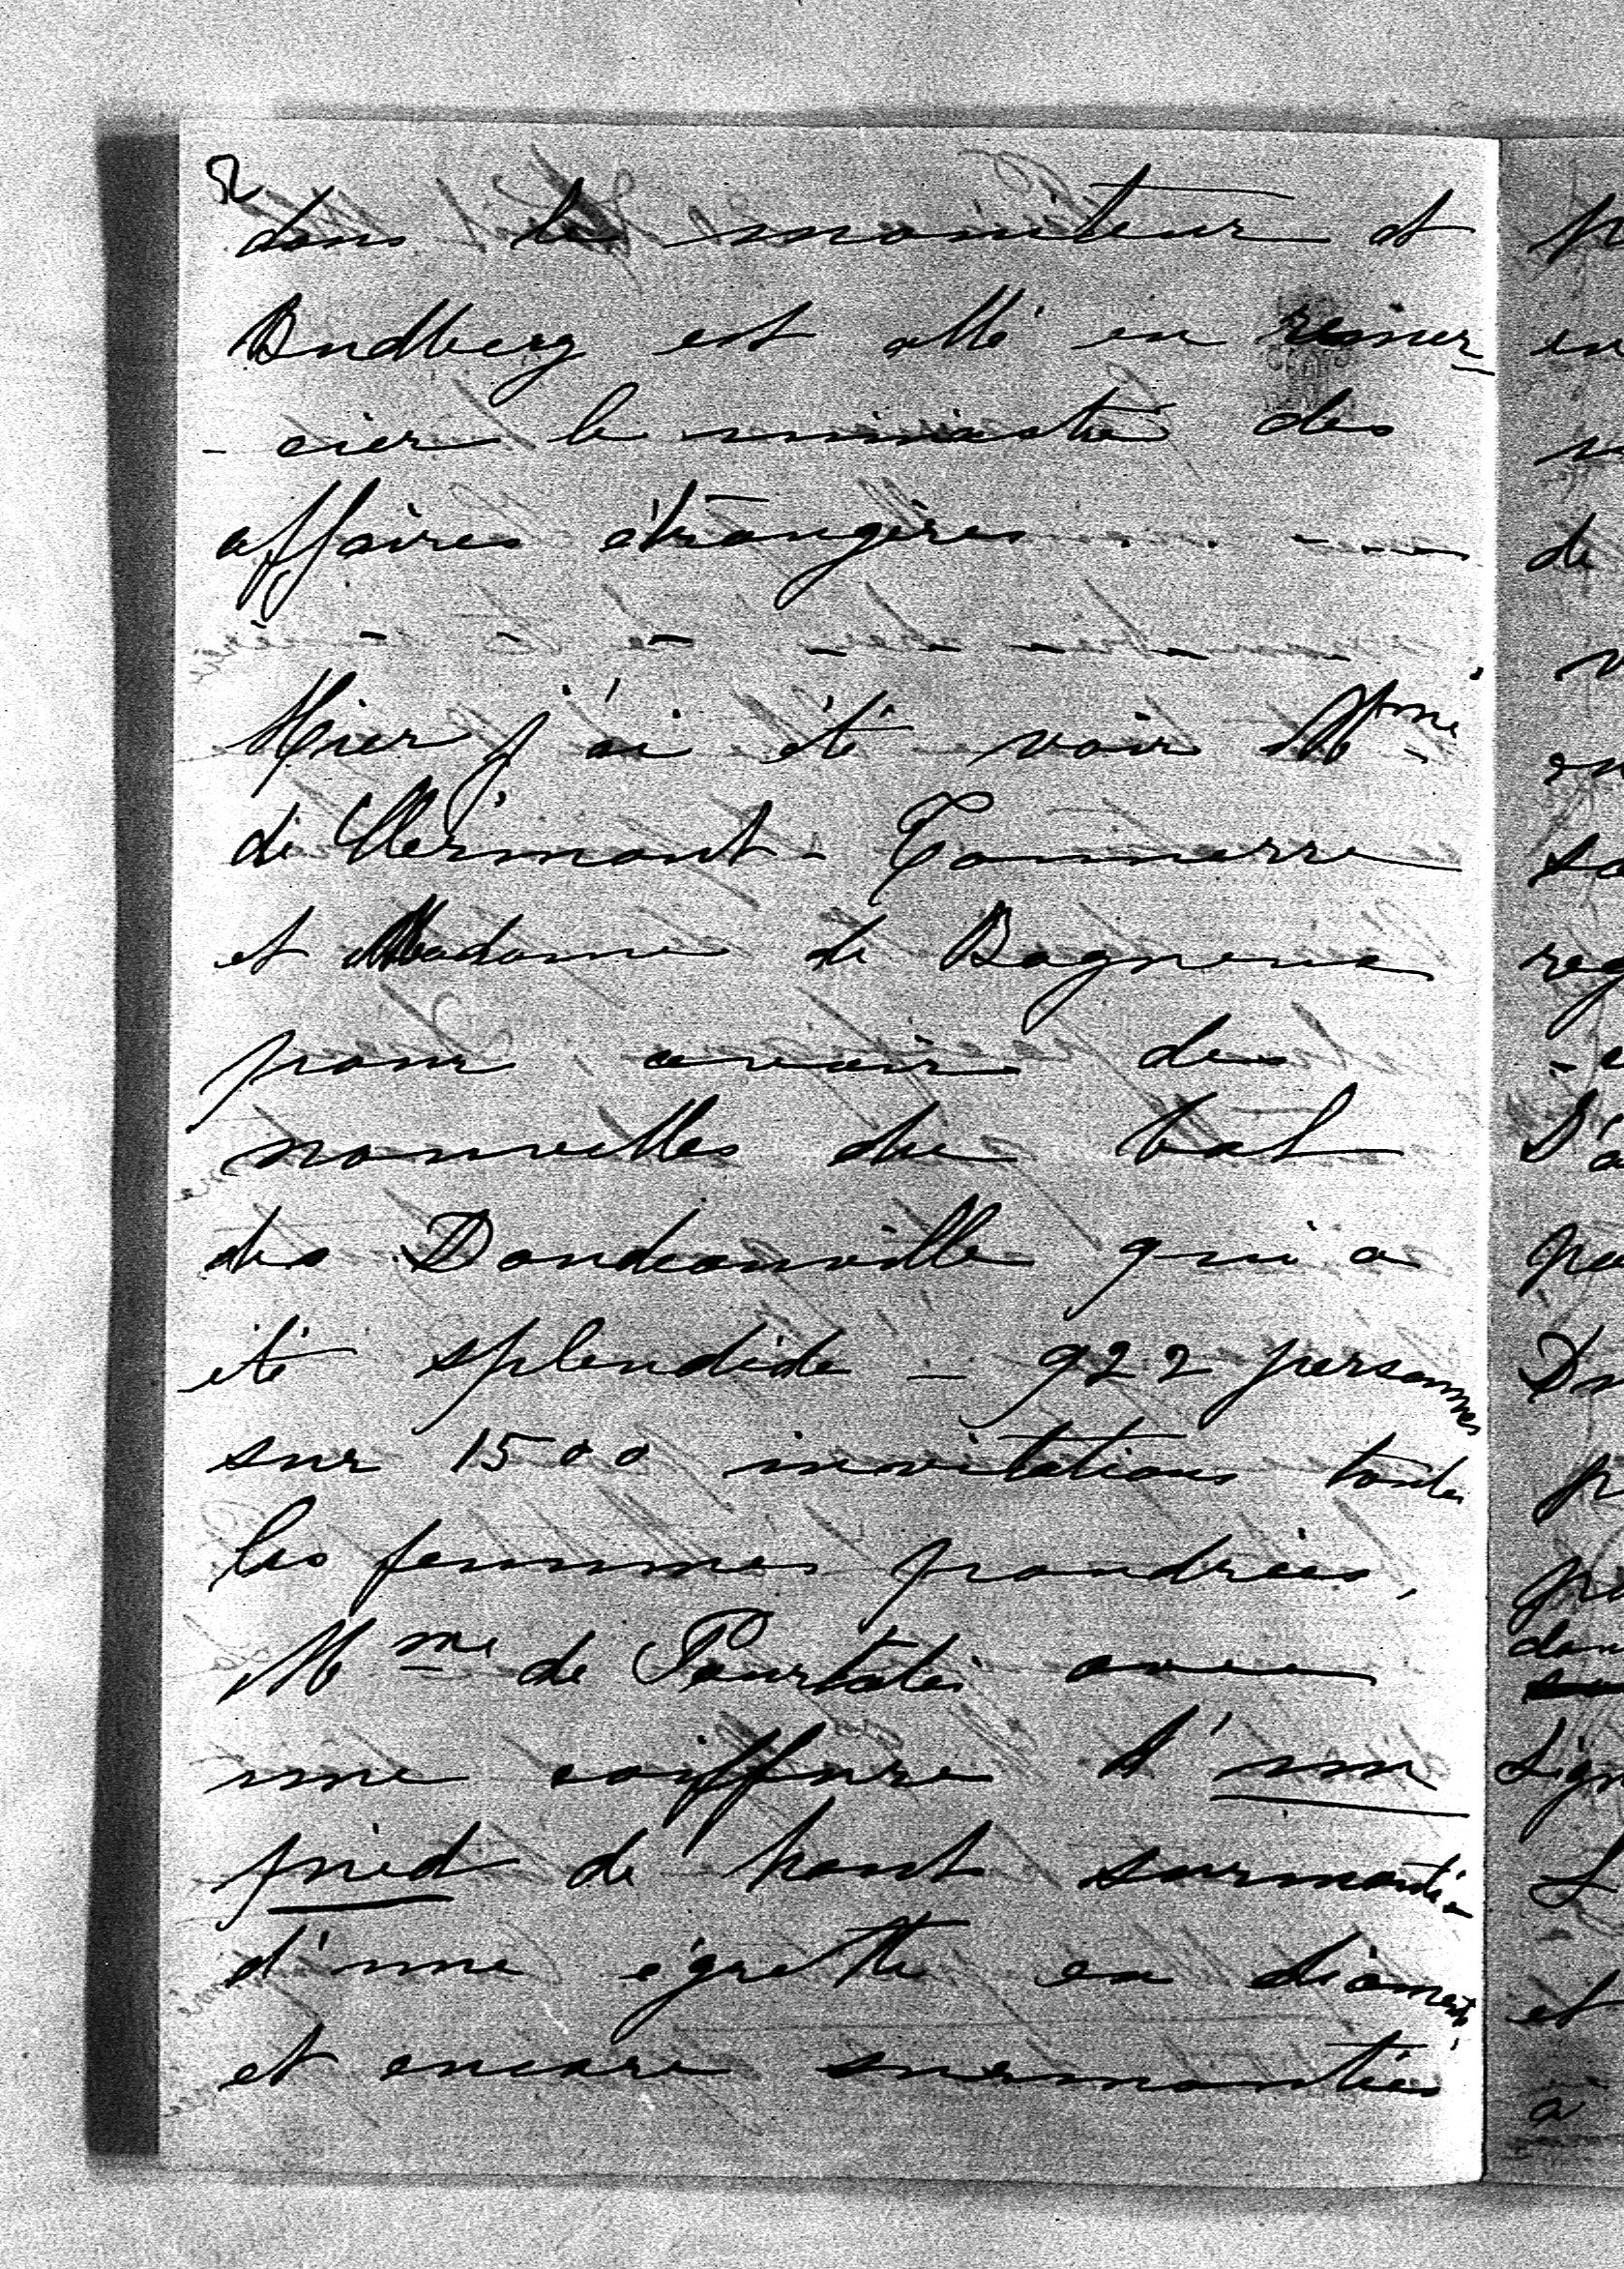 52
dans le moniteur et
Budberg est allé en remer
- cier le ministre des
affaires étrangères . . - - - -
- - - - - - - -
Hier j'ai été voir Mme
de Clermont - Tonnerre
et Madame de Bagneux
pour avoir des
nouvelles du bal
des Doudeauville qui a
été splendide - 922 personnes
sur 1500 invitations toutes
les femmes poudrées,
Mme de Pourtalès avec
une coiffure d'un
pied de haut surmontée
d'une égrette en diamants
et encore surmontées